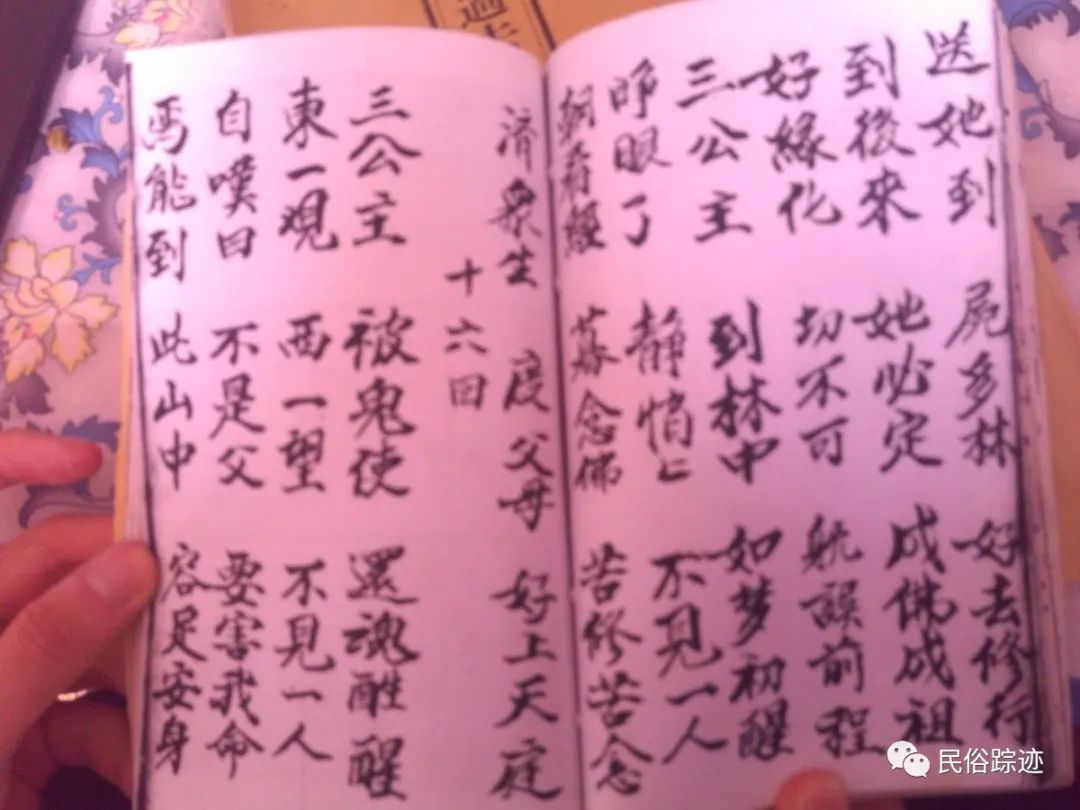 過
送她到 屍多林 好去修行
到後來 她必定 成佛成祖
好緣化 切不可 躭誤前程
三公主 到林中 如梦初醒
睁眼了 靜悄〻 不見一人
朝看經 暮念佛 苦修苦念
濟衆生 度父母 好上天庭
十六回
三公主 被鬼使 還魂 醒
東一觀 西一望 不見一人
自嘆曰 不是父 要害我命
焉能到 此山中 容足安身
民俗踪迹